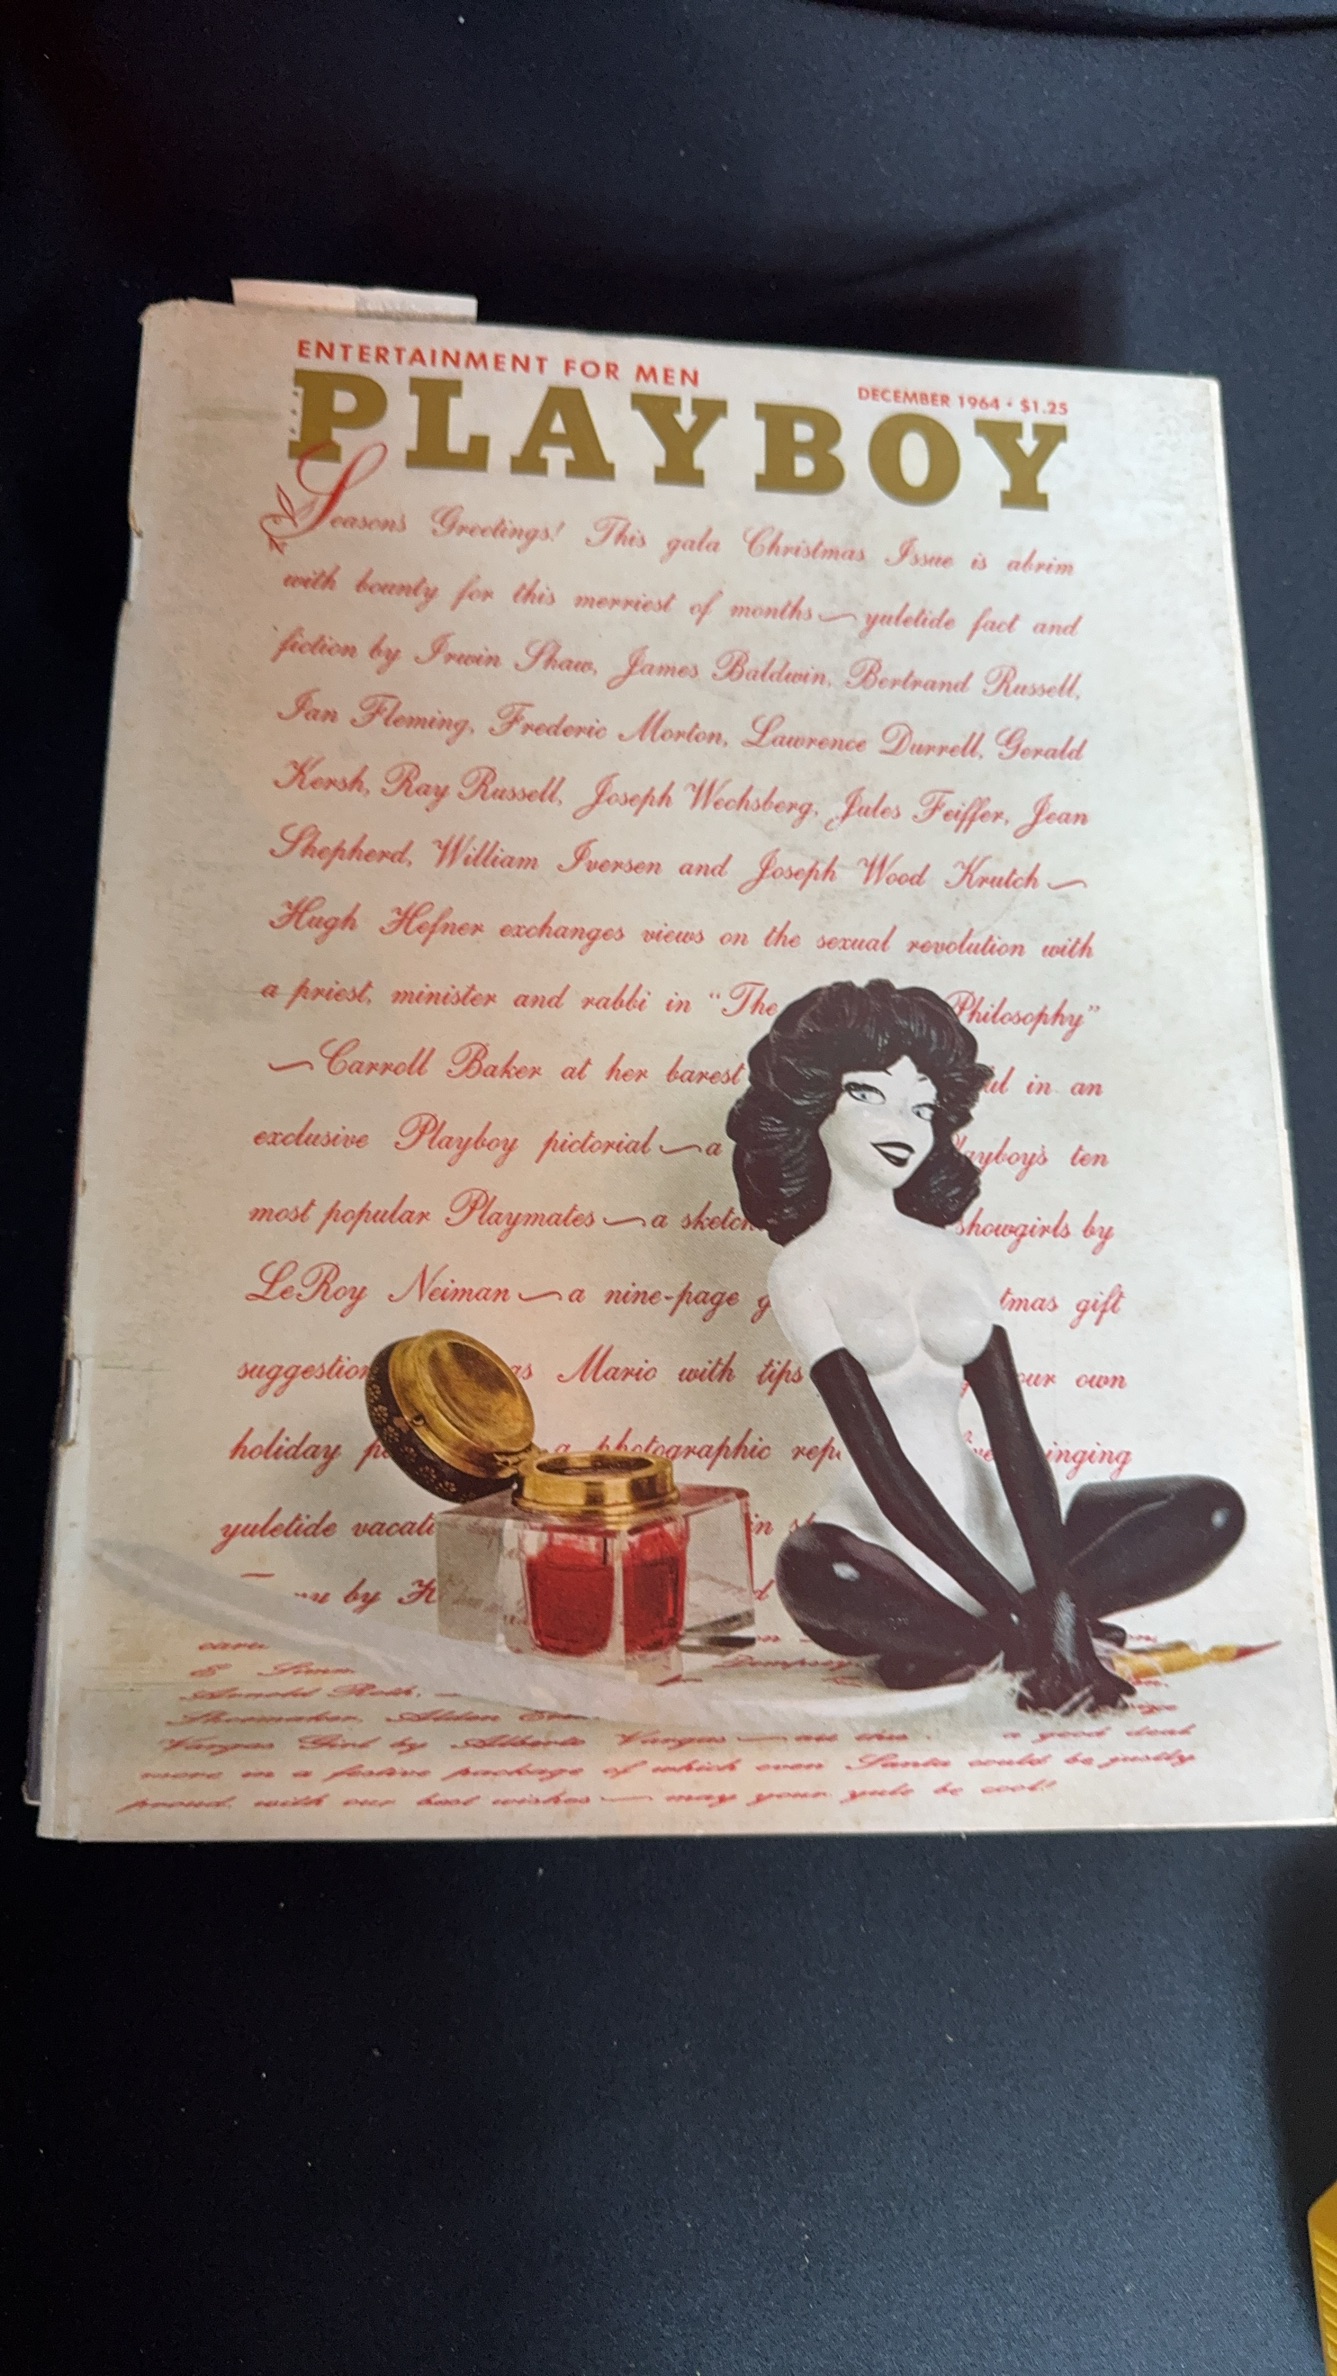 ENTERTAINMENT FOR MEN
DECEMBER 1964 • $1.25
PLAYBOY
Season's Greetings! This gala Christmas Issue is abrim
with bounty for this merriest of months — yuletide fact and
fiction by Irwin Shaw, James Baldwin, Bertrand Russell,
Ian Fleming, Frederic Morton, Lawrence Durrell, Gerald
Kersh, Ray Russell, Joseph Wechsberg, Jules Feiffer, Jean
Shepherd, William Iversen and Joseph Wood Krutch —
Hugh Hefner exchanges views on the sexual revolution with
a priest, minister and rabbi in "The Philosophy"
— Carroll Baker at her barest in an
exclusive Playboy pictorial — a Playboy's ten
most popular Playmates — a sketch showgirls by
LeRoy Neiman — a nine-page gift
Mario with tips own
holiday a photographic
yuletide in
by
Arnold Roth,
Shoemaker, Alden
Vargas Girl by Alberto Vargas — all this a good deal
more in a festive package of which even Santa could be justly
proud, with our best wishes — may your yule be cool!